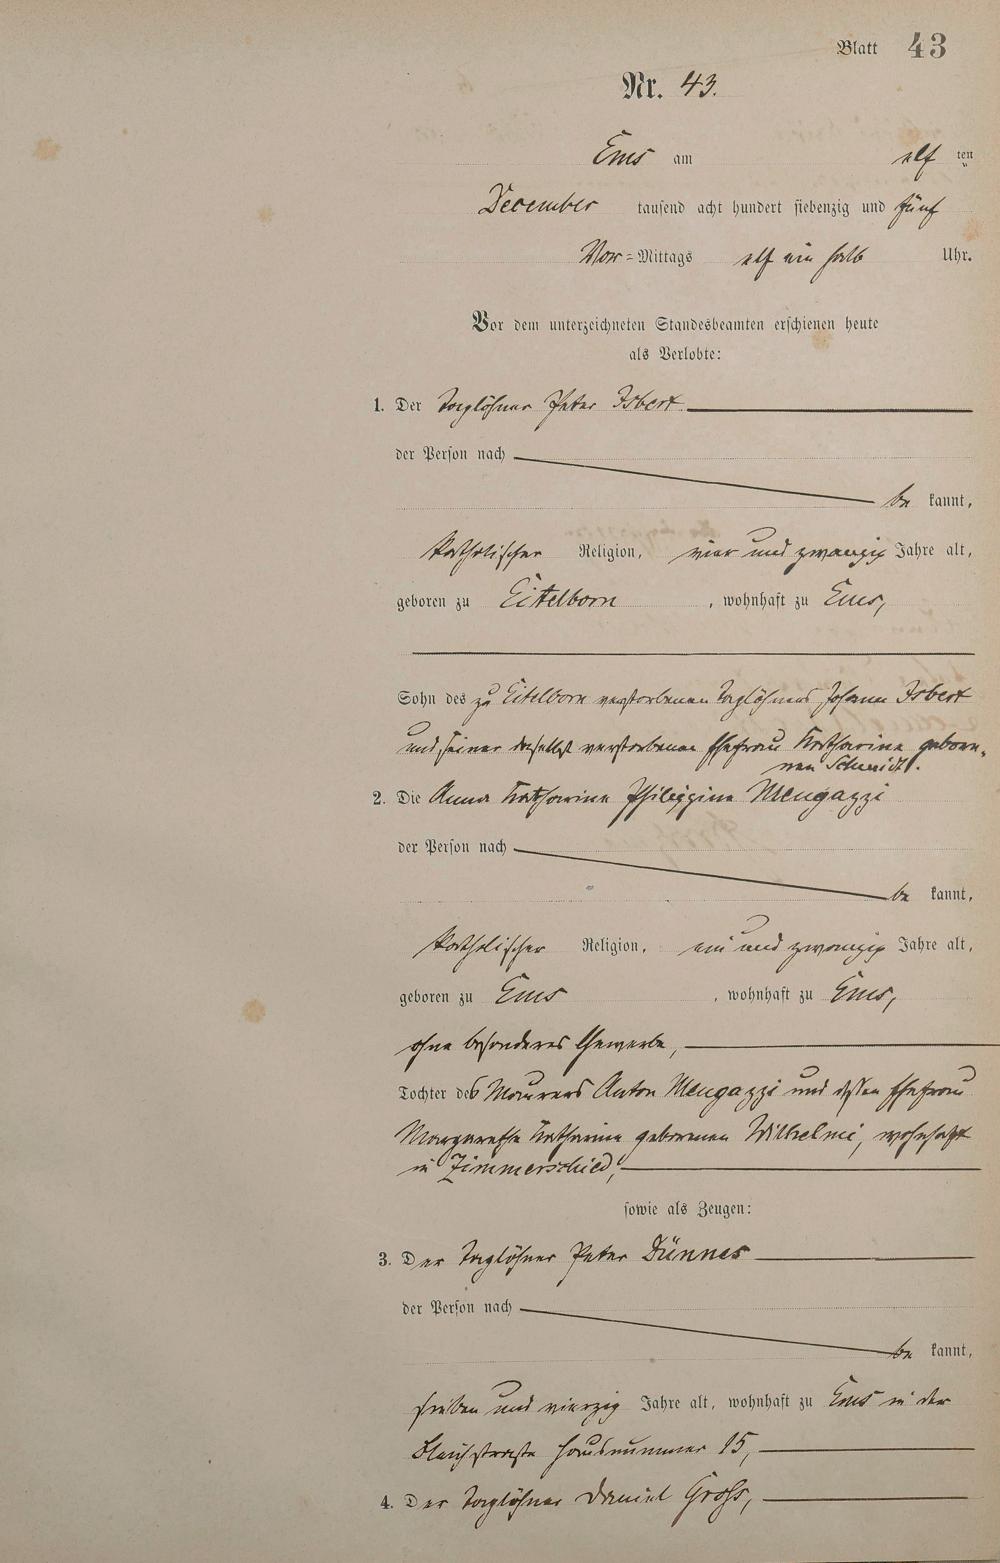 Blatt 43
Nr. 43.
Ems am elf ten
December tausend acht hundert siebenzig und fünf
Vor=Mittags elf ein halb Uhr.
Vor dem unterzeichneten Standesbeamten erschienen heute
als Verlobte:
1. Der Taglöhner Peter Isbert
der Person nach
be kannt,
katholischer Religion, vier und zwanzig Jahre alt,
geboren zu Eitelborn, wohnhaft zu Ems,
Sohn des zu Eitelborn verstorbenen Taglöhners Johann Isbert
und seiner daselbst verstorbenen Ehefrau Katharine gebore-
nen Schmidt.
2. Die Anna Katharina Philippine Mengazzi
der Person nach
be kannt,
katholischer Religion, ein und zwanzig Jahre alt,
geboren zu Ems, wohnhaft zu Ems,
ohne besonderes Gewerbe,
Tochter des Maurers Anton Mengazzi und dessen Ehefrau
Margarethe Katharine geborenen Wilhelmi, wohnhaft
in Zimmerschied,
sowie als Zeugen:
3. Der Taglöhner Peter Dünnes
der Person nach
be kannt,
sieben und vierzig Jahre alt, wohnhaft zu Ems in der
Bleichstraße Hausnummer 15,
4. Der Taglöhner Daniel Groß,